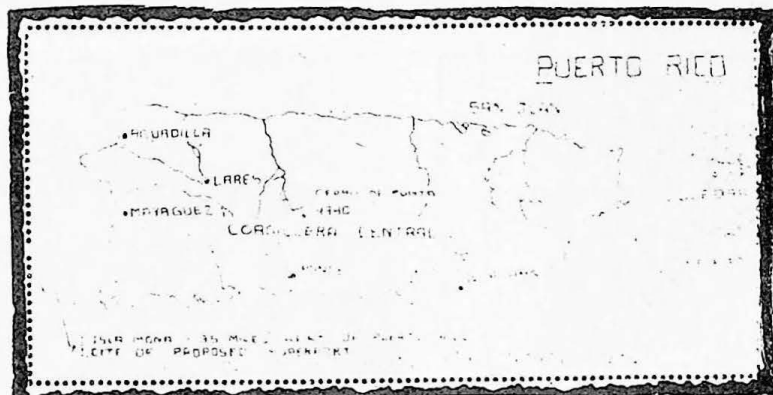 PUERTO RICO
SAN JUAN
AGUADILLA
LARES
CERRO DE PUNTA
MAYAGUEZ
CORDILLERA CENTRAL
PONCE
ISLA MONA 35 MILES WEST OF PUERTO
SITE OF PROPOSED SUPERPORT